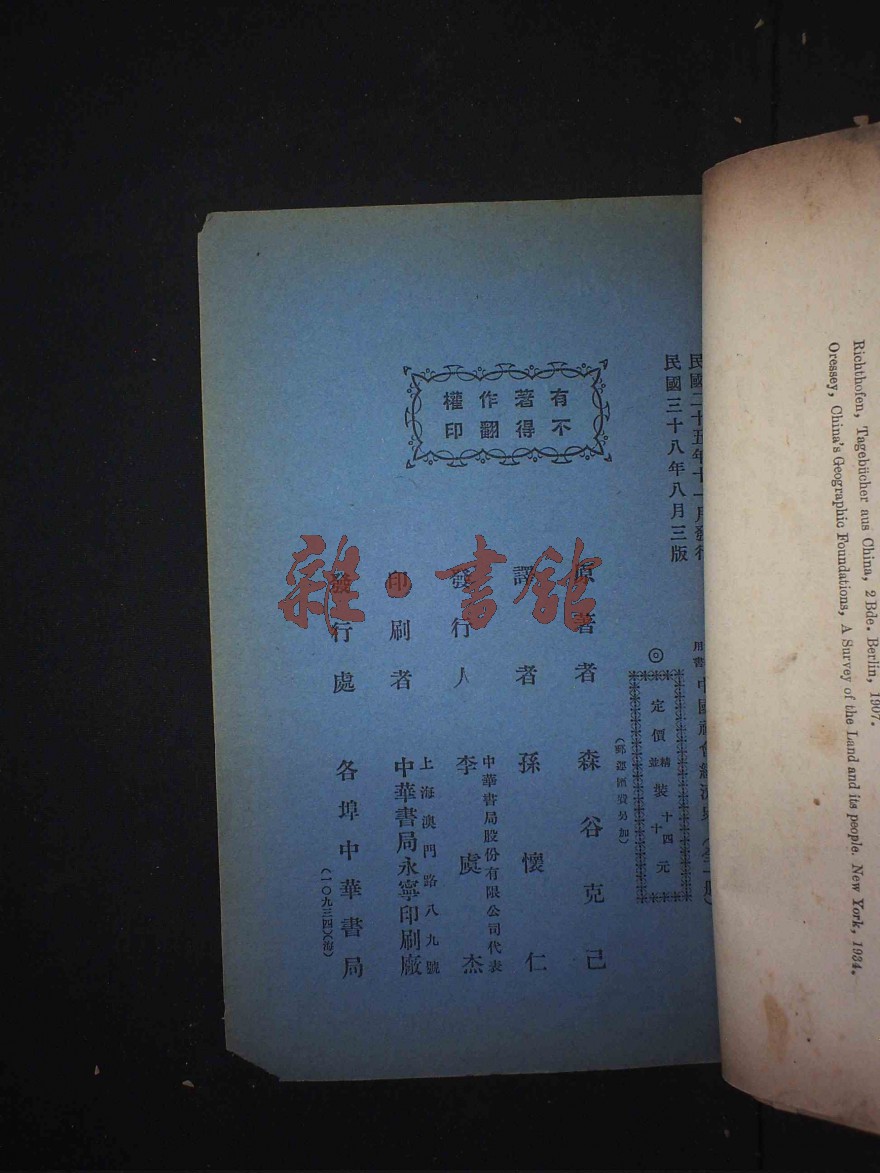 民國二十五年十一月發行
民國三十八年八月三版
中國社會經濟史(全一册)
◎
定價
精
裝
十四元
十
(郵運匯費另加)
原著者 森谷克己
譯者 孫懷仁
中華書局股份有限公司代表
發行人 李虞杰
上海澳門路八九號
印刷者 中華書局永寧印刷廠
發行處 各埠中華書局
(一〇九三四)(海)
有著作權
不得翻印
雜·書館
Richthofen, Tagebücher aus China, 2 Bde. Berlin, 1907.
Oressey, China's Geographic Foundations, A Survey of the Land and its people. New York, 1934.